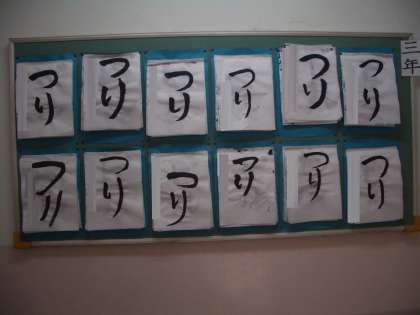 つり つり つり つり つり つり
つり つり つり つり つり つり
三年